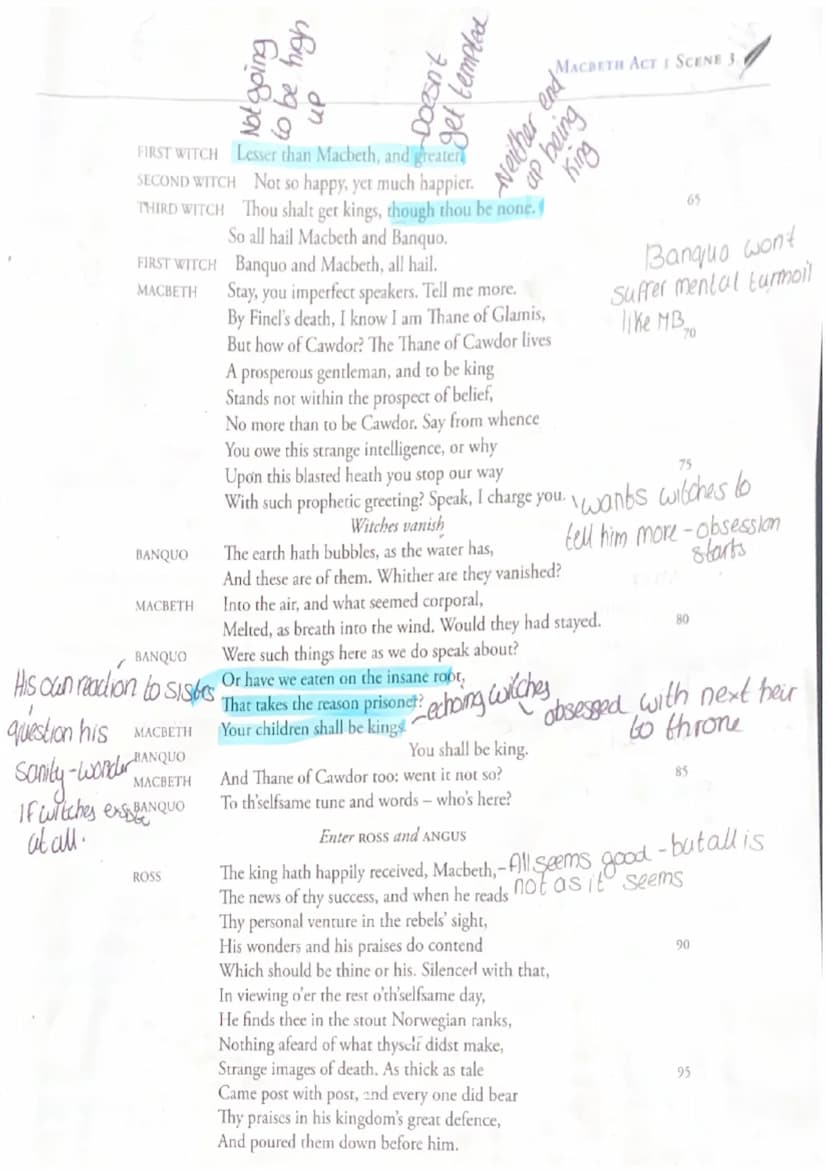 Not going
to be high
up
-Doesn't
get tempted
Neither end
up being
king
MACBETH ACT 1 SCENE 3
FIRST WITCH Lesser than Macbeth, and greater.
SECOND WITCH Not so happy, yet much happier.
THIRD WITCH Thou shalt get kings, though thou be none. 65
So all hail Macbeth and Banquo.
FIRST WITCH Banquo and Macbeth, all hail.
Banquo wont
suffer mental turmoil
like MB
MACBETH Stay, you imperfect speakers. Tell me more.
By Finel's death, I know I am Thane of Glamis,
But how of Cawdor? The Thane of Cawdor lives 70
A prosperous gentleman, and to be king
Stands not within the prospect of belief,
No more than to be Cawdor. Say from whence
You owe this strange intelligence, or why
Upon this blasted heath you stop our way 75
With such prophetic greeting? Speak, I charge you.
wants witches to
tell him more - obsession
starts
Witches vanish
BANQUO The earth hath bubbles, as the water has,
And these are of them. Whither are they vanished?
MACBETH Into the air, and what seemed corporal,
Melted, as breath into the wind. Would they had stayed. 80
BANQUO Were such things here as we do speak about?
Or have we eaten on the insane root,
That takes the reason prisoner?
His own reaction to sisters
question his
sanity - wonder
if witches exist
at all.
MACBETH Your children shall be kings.
-echoing witches
obsessed with next heir
to throne
BANQUO You shall be king.
MACBETH And Thane of Cawdor too: went it not so? 85
BANQUO To th'selfsame tune and words – who's here?
Enter ROSS and ANGUS
ROSS The king hath happily received, Macbeth,
The news of thy success, and when he reads
-All seems good - but all is
not as it seems
Thy personal venture in the rebels' sight,
His wonders and his praises do contend 90
Which should be thine or his. Silenced with that,
In viewing o'er the rest o'th'selfsame day,
He finds thee in the stout Norwegian ranks,
Nothing afeard of what thyself didst make,
Strange images of death. As thick as tale 95
Came post with post, and every one did bear
Thy praises in his kingdom's great defence,
And poured them down before him.